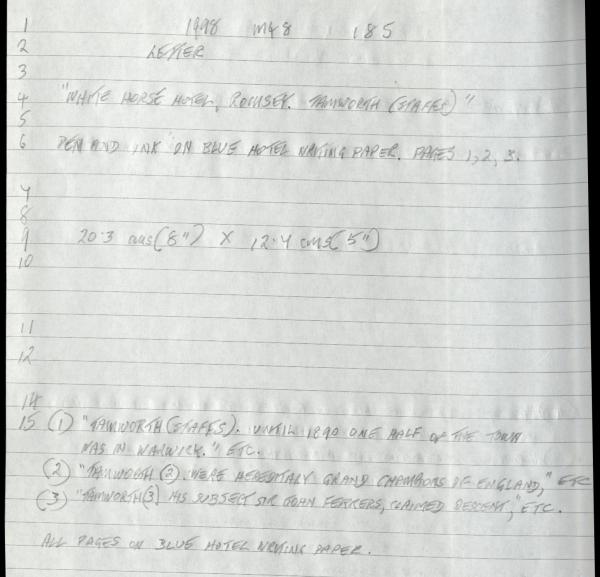 1 1998 M48 185
2 LETTER
3
4 "WHITE HORSE HOTEL, ROMSEY. TAMWORTH (STAFFS)"
5
6 PEN AND INK ON BLUE HOTEL WRITING PAPER. PAGES 1, 2, 3.
7
8
9 20.3 cms (8") X 12.4 cms (5")
10
11
12
14
15 (1) "TAMWORTH (STAFFS). UNTIL 1890 ONE HALF OF THE TOWN
WAS IN WARWICK." ETC.
(2) "TAMWORTH (2) WERE HEREDITARY GRAND CHAMPIONS OF ENGLAND," ETC
(3) "TAMWORTH (3) HIS SUBJECT SIR JOHN FERRERS, CLAIMED DESCENT," ETC.
ALL PAGES ON BLUE HOTEL WRITING PAPER.